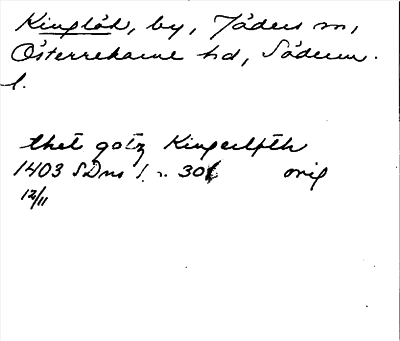 Kinglöt, by, Jäders sn,
Österrekarne hd, Söderm.
l.
thet gotz Kingerlöth
1403 SDns 1 n. 306 orig
12/11